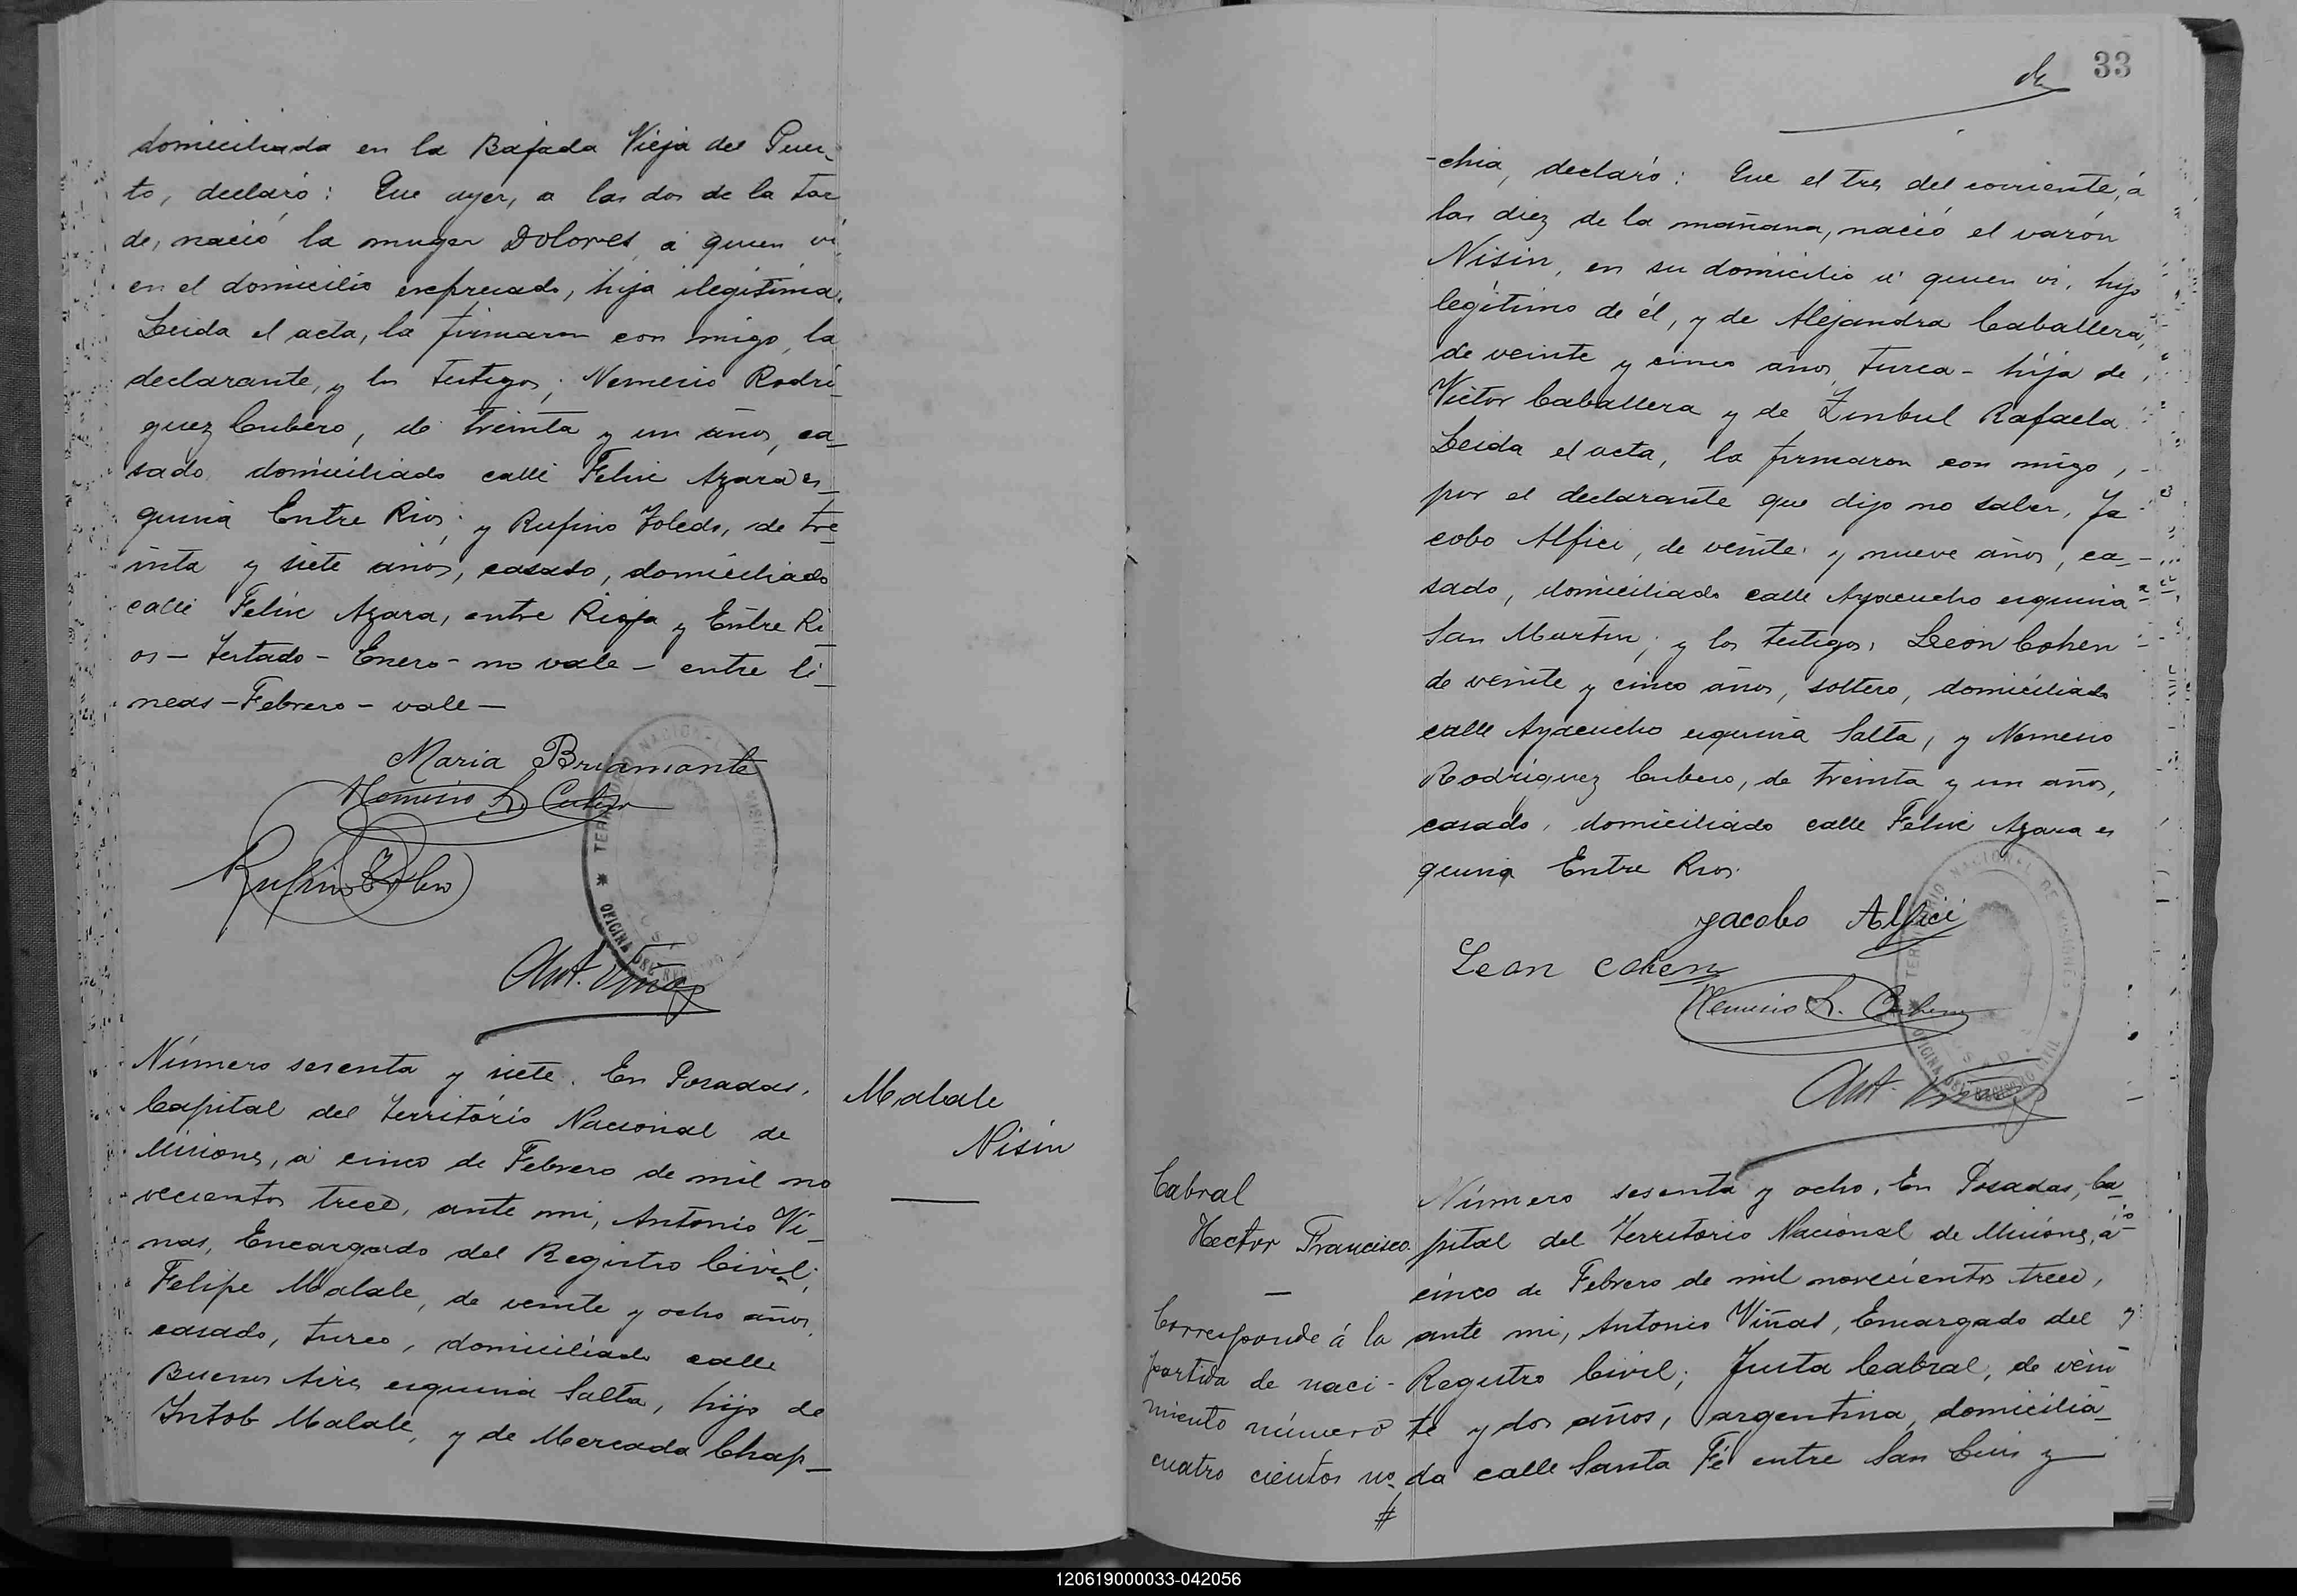 domiciliada en la Bajada Vieja del Puer-
to, declaró: Que ayer, a las dos de la tar
de, nació la muger Dolores, á quien vi
en el domicilio expresado, hija ilegítima.
Leida el acta, la firmaron con migo, la
declarante, y los testigos; Nemesio Rodri-
guez Cubero, de treinta y un años, ca-
sado, domiciliado calle Felix Azara es-
quina Entre Rios; y Rufino Toledo, de tre-
inta y siete años, casado, domiciliado
calle Felix Azara, entre Rioja y Entre Ri
os - Testado - Enero - no vale - entre li-
neas - Febrero - vale -
Maria Briamonte
Nemesio R. Cubero
Rufino Toledo
TERRITORIO NACIONAL DE MISIONES
OFICINA DEL REGISTRO
Ant. Viñas
Número sesenta y siete. En Posadas,
Capital del Territorio Nacional de
Misiones, a cinco de Febrero de mil no
vecientos trece, ante mi, Antonio Vi-
ñas, Encargado del Registro Civil;
Felipe Malale, de veinte y ocho años,
casado, turco, domiciliado calle
Buenos Aires esquina Salta, hijo de
Intob Malale, y de Mercada Chap-
Malale
Nisin
33
-chia, declaró: Que el tres del corriente, á
las diez de la mañana, nació el varón
Nisin, en su domicilio á quien vi, hijo
legítimo de él, y de Alejandra Caballera,
de veinte y cinco años, turca - hija de
Victor Caballera y de Zinbul Rafaela
Leida el acta, la firmaron con migo,
por el declarante que dijo no saber, Ja
cobo Alfici, de veinte y nueve años, ca-
sado, domiciliado calle Ayacucho esquina
San Martin; y los testigos, León Cohen
de veinte y cinco años, soltero, domiciliado
calle Ayacucho esquina Salta, y Nemesio
Rodriguez Cubero, de treinta y un años,
casado, domiciliado calle Felix Azara es
quina Entre Rios.
Jacobo Alfici
Leon Cohen
Nemesio R. Cubero
TERRITORIO NACIONAL DE MISIONES
OFICINA DEL REGISTRO CIVIL
Ant. Viñas
Cabral
Hector Francisco
Corresponde á la
partida de naci-
miento número
cuatro cientos no-
#
Número sesenta y ocho. En Posadas, Ca-
pital del Territorio Nacional de Misiones, á
cinco de Febrero de mil novecientos trece,
ante mi, Antonio Viñas, Encargado del
Registro Civil; Justa Cabral, de vein
te y dos años, argentina, domicilia-
da calle Santa Fé entre San Luis y
120619000033-042056